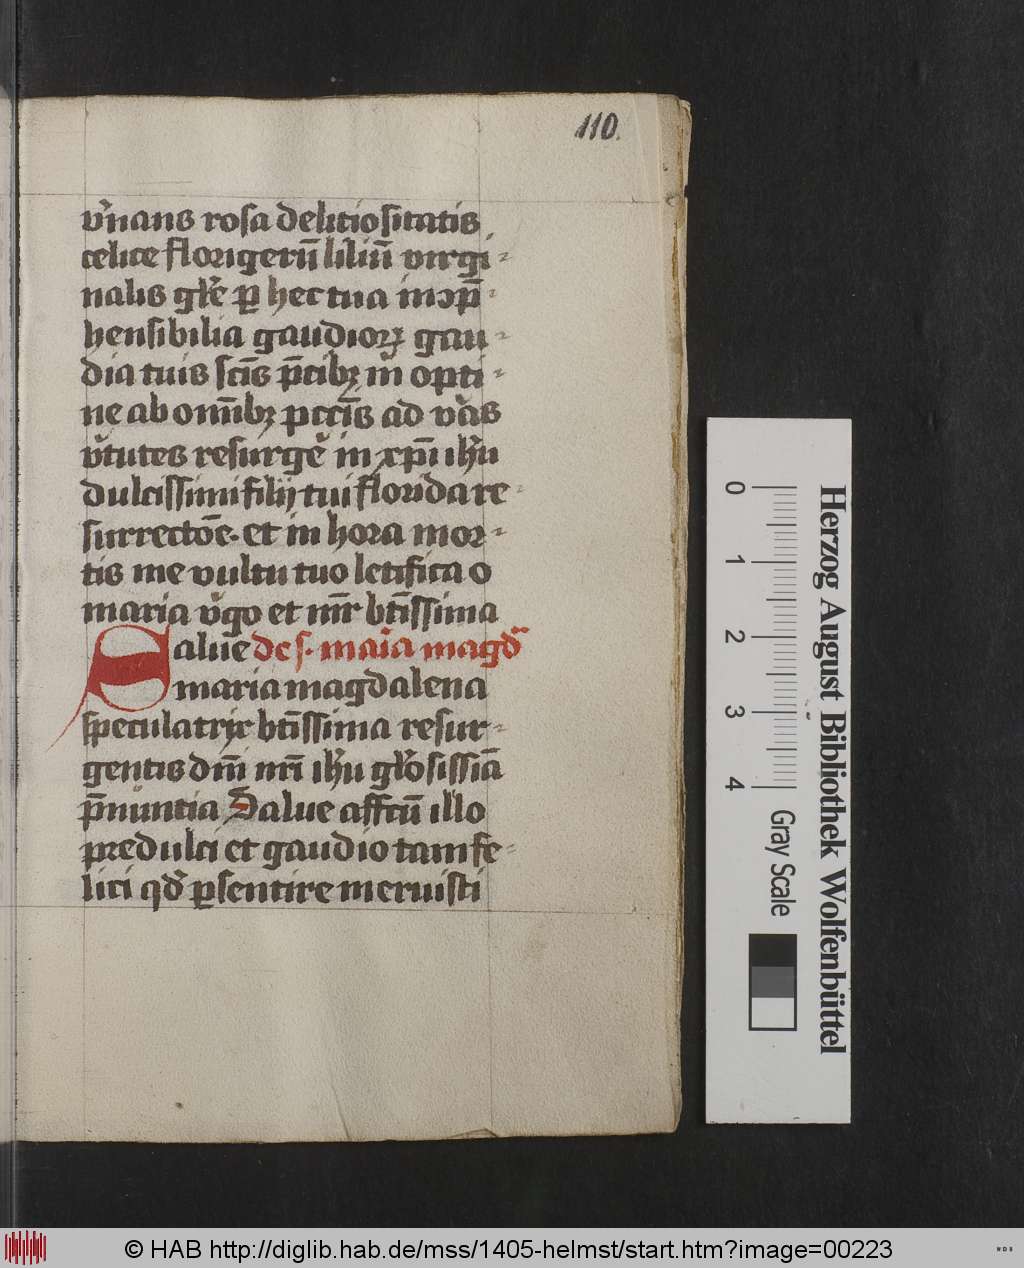 110.
v̾nans rosa delitiositatis
celice florigerū liliū virgi-
nalis gl̾e ꝑ hec tua incōp̄-
hensibilia gaudioꝝ gau-
dia tuis sc̄is p̄cibꝫ in opti-
ne ab om̄ibꝫ pccīs ad v̾as
v̾tutes resurg̾e in xp̄i ih̾u
dulcissimi filij tui florida re-
surrectōe. et in hora mor-
tis me vultu tuo letifica o
maria v̾go et mr̄ bt̄issima
Salue de s. maīa magd̾
maria magdalena
speculatrix bt̄issima resur-
gentis dn̄i nr̄i ih̾u gl̾osissīa
p̄nūntia Salue affc̄tū illo
predulci et gaudio tam fe-
lici qd̾ ꝑsentire meruisti
0 1 2 3 4
Gray Scale
Herzog August Bibliothek Wolfenbüttel
© HAB http://diglib.hab.de/mss/1405-helmst/start.htm?image=00223